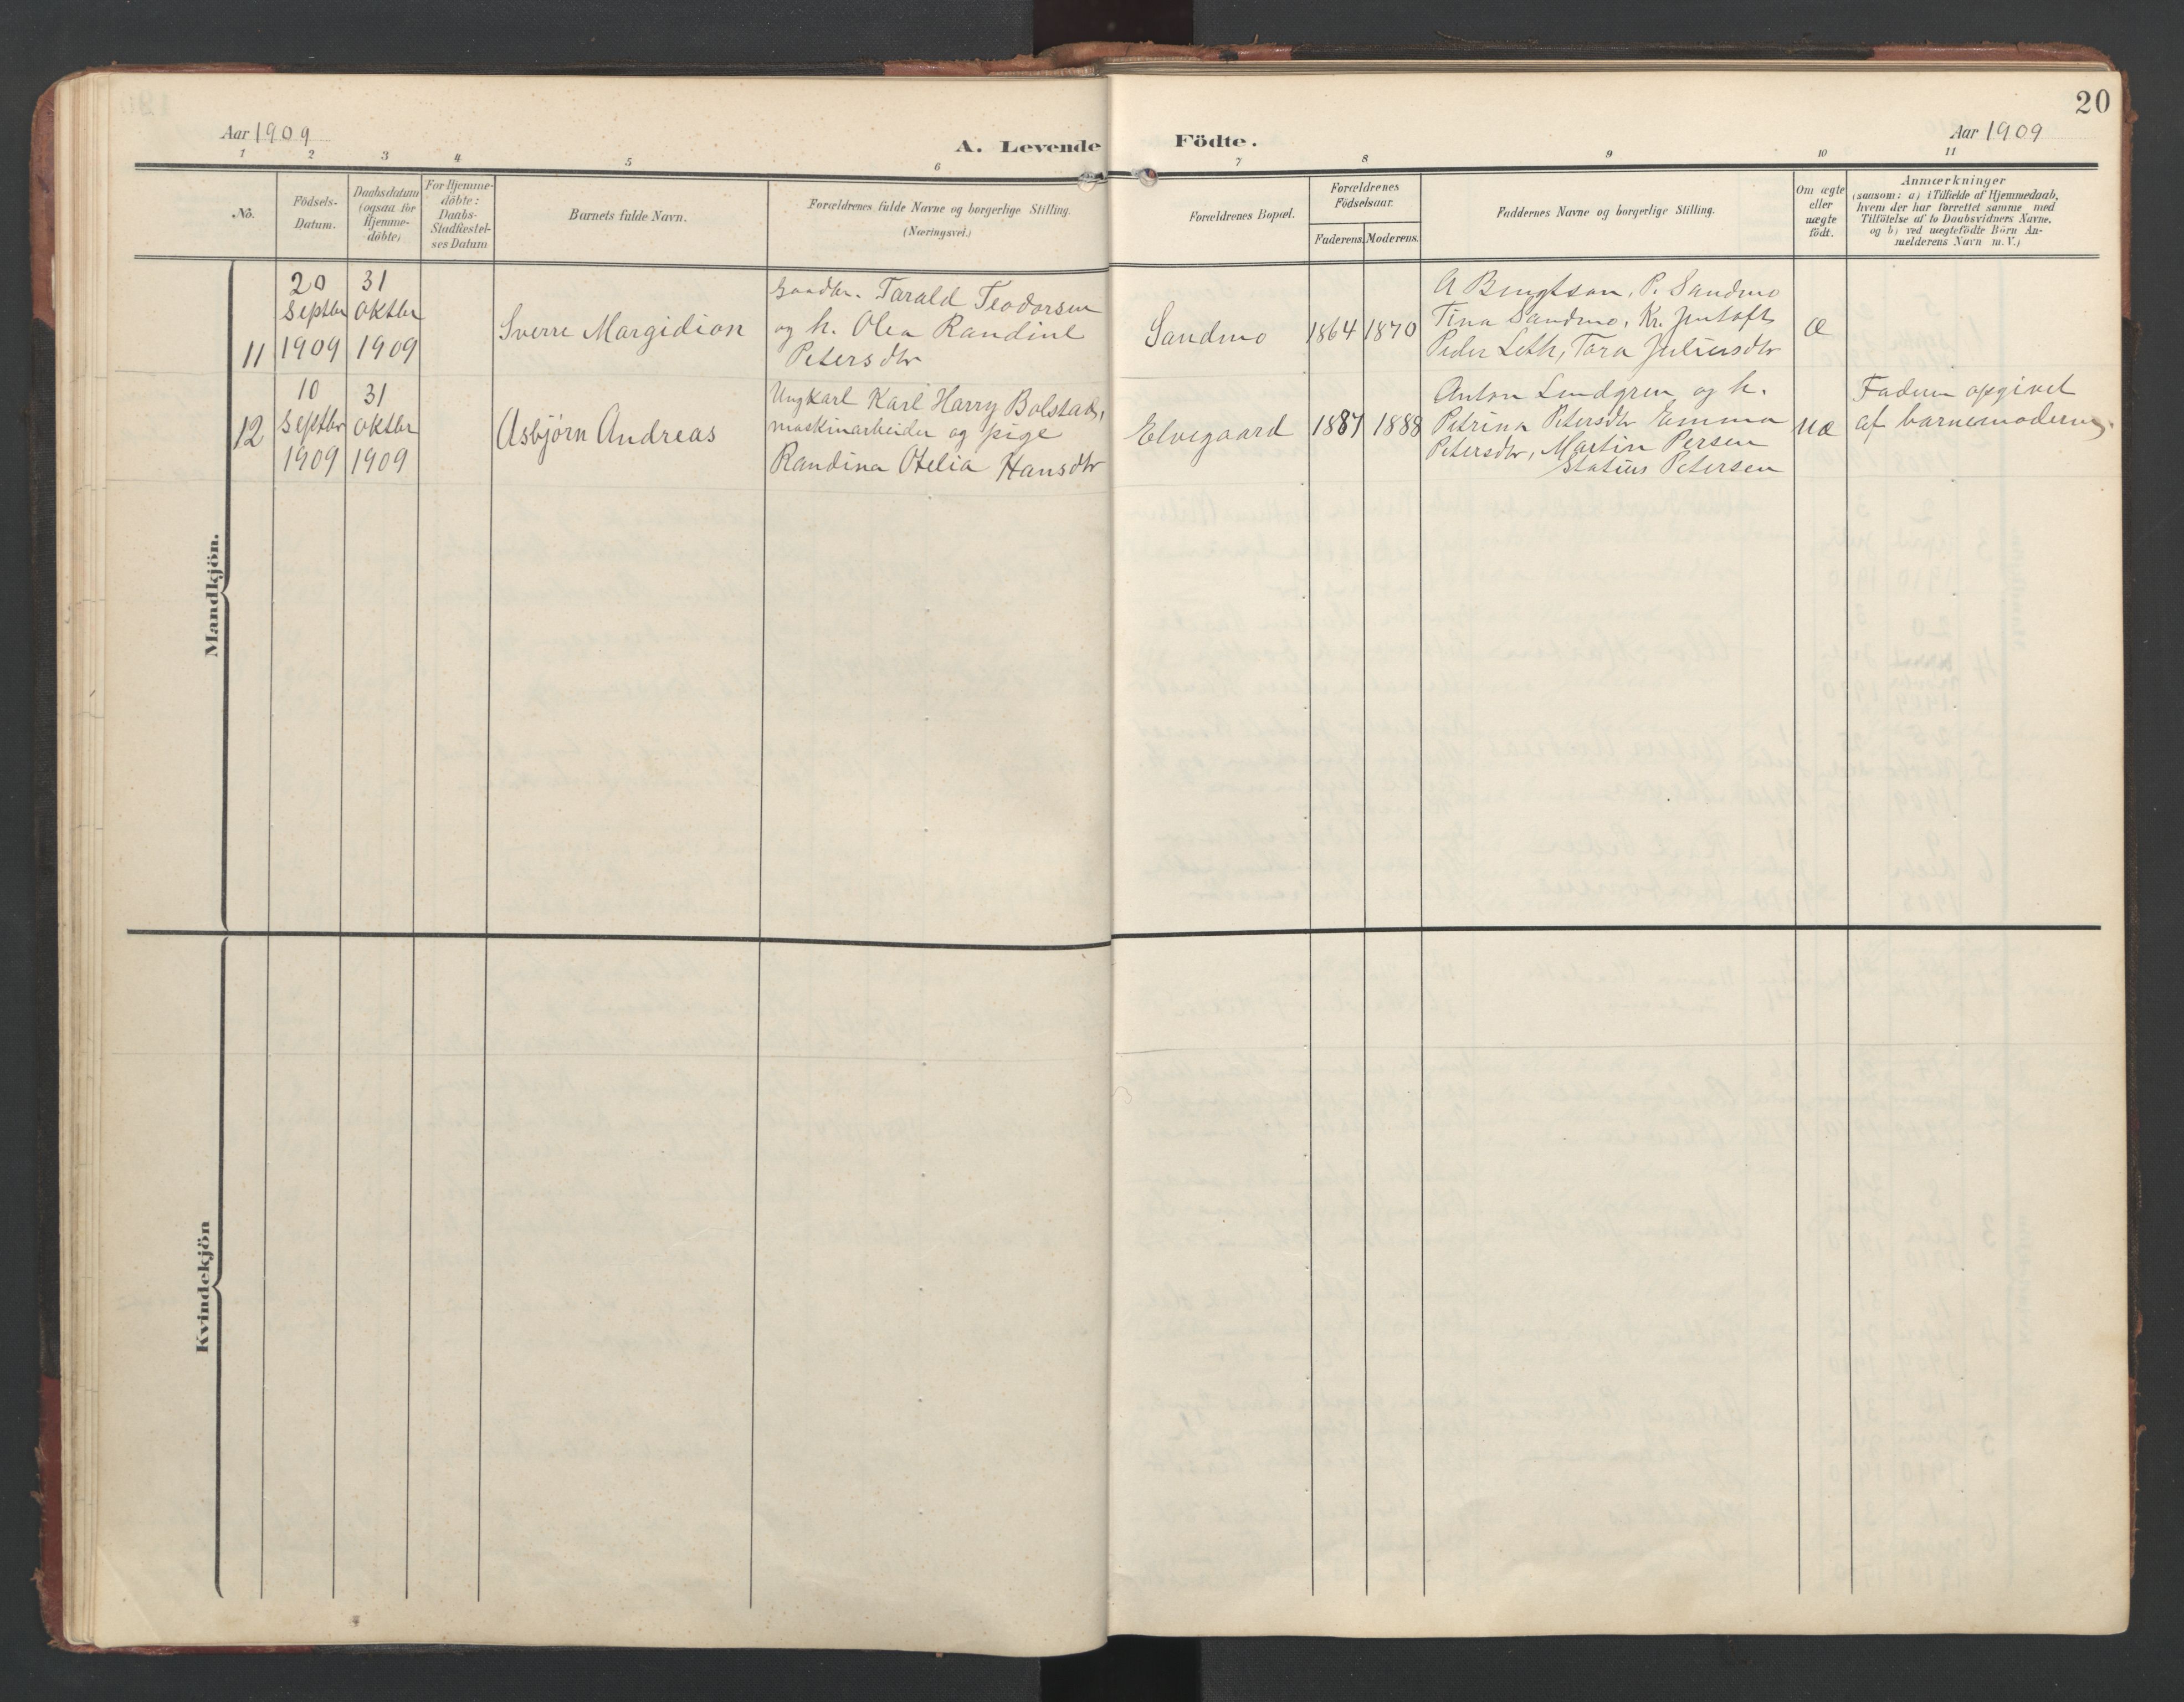 20
Aar 1909
A. Levende Födte.
Aar 1909
1 2 3 4 5 6 7 8 9 10 11
No.
Födsels-
Datum.
Daabsdatum
(ogsaa for
Hjemme-
döbte)
For Hjemme-
döbte:
Daabs-
Stadfæstel-
ses Datum
Barnets fulde Navn.
Forældrenes fulde Navne og borgerlige Stilling.
(Næringsvei.)
Forældrenes Bopæl.
Forældrenes
Födselsaar.
Faderens. Moderens.
Faddernes Navne og borgerlige Stilling.
Om ægte
eller
uægte
födt.
Anmærkninger
(saasom: a) i Tilfælde af Hjemmedaab,
hvem der har forrettet samme med
Tilföielse af to Daabsvidners Navne,
og b) ved uægtefödte Börn An-
melderens Navn m. V.)
Mandkjön.
11
20
Septbr
1909
31
oktbr
1909
Sverre Margidion
Gaardbr. Tarald Teodorsen
og h. Olea Randine
Petersdtr
Sandmo
1864
1870
A Bengtson, P. Sandmo
Tina Sandmo, Kr.
Peder Leth, Tara Juliusdtr
æ
12
10
Septbr
1909
31
oktbr
1909
Asbjörn Andreas
Ungkarl Karl Harry Bolstad,
maskinarbeider og pige
Randina Otelia Hansdtr
Elvegaard
1887
1888
Anton Lundgren og h.
Petrina Petersdtr Emma
Petersdtr, Martin Persen
Statius Petersen
uæ
Faderen opgivet
af barnemoderen
Kvindekjön